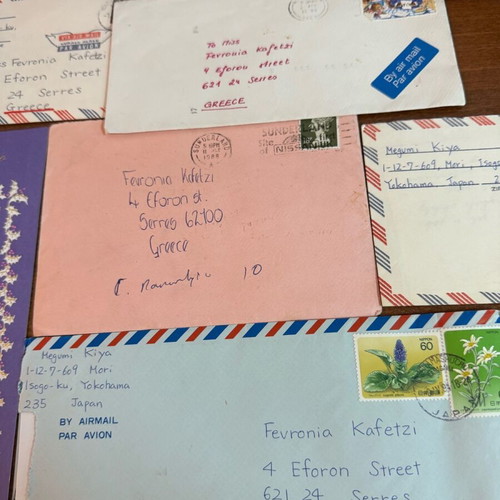 VIA AIR MAIL
PAR AVION
s Fevronia Kafetzi
Eforon Street
24 Serres
Greece
To Miss
Fevronia Kafetzi
4 Eforon street
621 24 Serres
GREECE
By air mail
Par avion
SUNDERLAND
SUNDER
NISS
1989
Fevronia Kafetzi
4 Eforon st.
Serres 62100
Greece
10
Megumi Kiya
1-12-7-609, Mori, Isogo
Yokohama Japan 2
NIPPON
60
JAPAN
Megumi Kiya
1-12-7-609 Mori
Isogo-ku, Yokohama
235 Japan
BY AIRMAIL
PAR AVION
Fevronia Kafetzi
4 Eforon Street
621 24 Serres